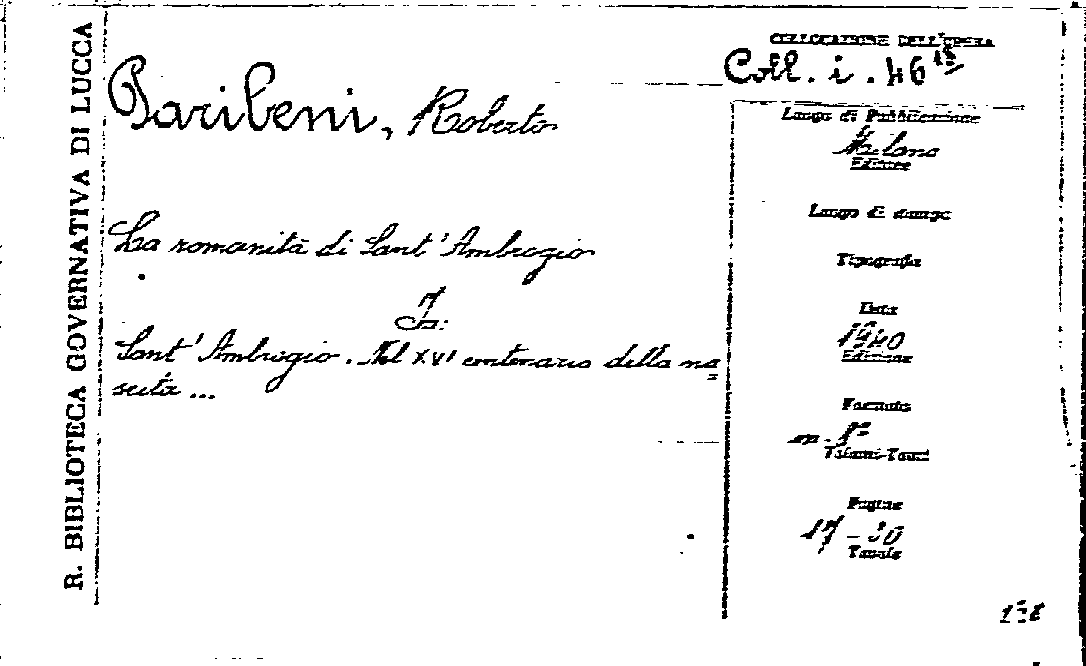 R. BIBLIOTECA GOVERNATIVA DI LUCCA
Paribeni, Roberto
La romanità di Sant'Ambrogio
In:
Sant'Ambrogio. Nel XVI centenario della na=
scita ...
COLLOCAZIONE DELL'OPERA
Coll. i. 46
Luogo di Pubblicazione
Milano
Edizione
Luogo di stampa
Tipografia
Data
1940
Edizione
Formato
in-8º
Volumi-Tomi
Pagine
17-30
Tavole